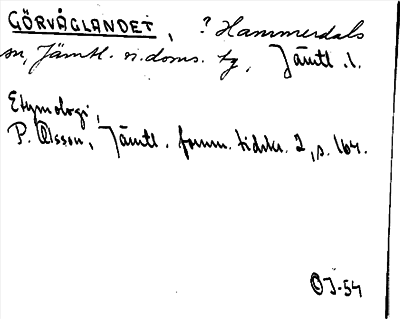 GÖRVÅGLANDET, ? Hammerdals
sn, Jämtl. n. doms. tg, Jämtl. l.
Etymologi,
P. Olsson, Jämtl. fornm. tidskr. 2, s. 164.
OJ-54